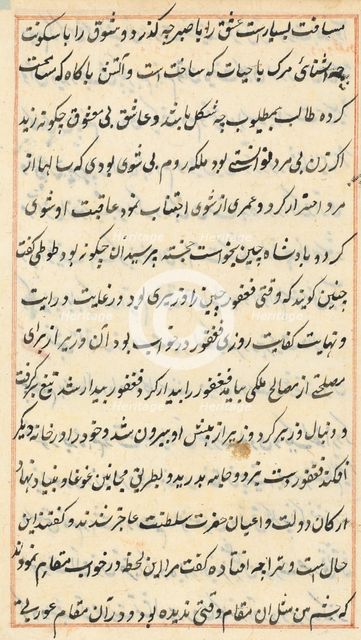 مسافت بسیار است عشق را با صبر چه کذر د و شوق را با سکونت
چه اشنائ مرک با حیات که ساخت است و آتش با کاه که ساحت
کرده طالب بمطلوب چه مشکل باشد و عاشق بی معشوق چکونه زید
اکر زن بی مرد توانستی بود ملکه روم بی شوی بودی که سالها از
مرد احتراز کرد و عمری از شوی اجتناب نمود عاقبت او شوی
کرد و پادشاه چین بخواست خجسته پرسید ان چکونه بود طوطی کفت
چنین کویند که وقتی فغفور چین را وزیری بود در غایت درایت
و نهایت کفایت روزی فغفور در خواب بود آن وزیر از برای
مصلحتی از مصالح ملکی بیامد فغفور را بیدار کرد فغفور بیدار شد تیغ برکرفت
و دنبال وزیر کرد وزیر از پیش او بیرون شد و خود را در خانه دیکر
افکند فغفور دست تیرد و جامه بدرید و بطریق مجانین غوغا و بنیاد نهاد
ارکان دولت و اعیان حضرت سلطنت عاجز شدند و کفتند این
حال است و ترا چه افتاده کفت مرا این لحظه در خواب مقام نمودند
که من مثل ان مقام وقتی ندیده بودم و در آن مقام عورتی
Heritage
Heritage
Heritage
Heritage